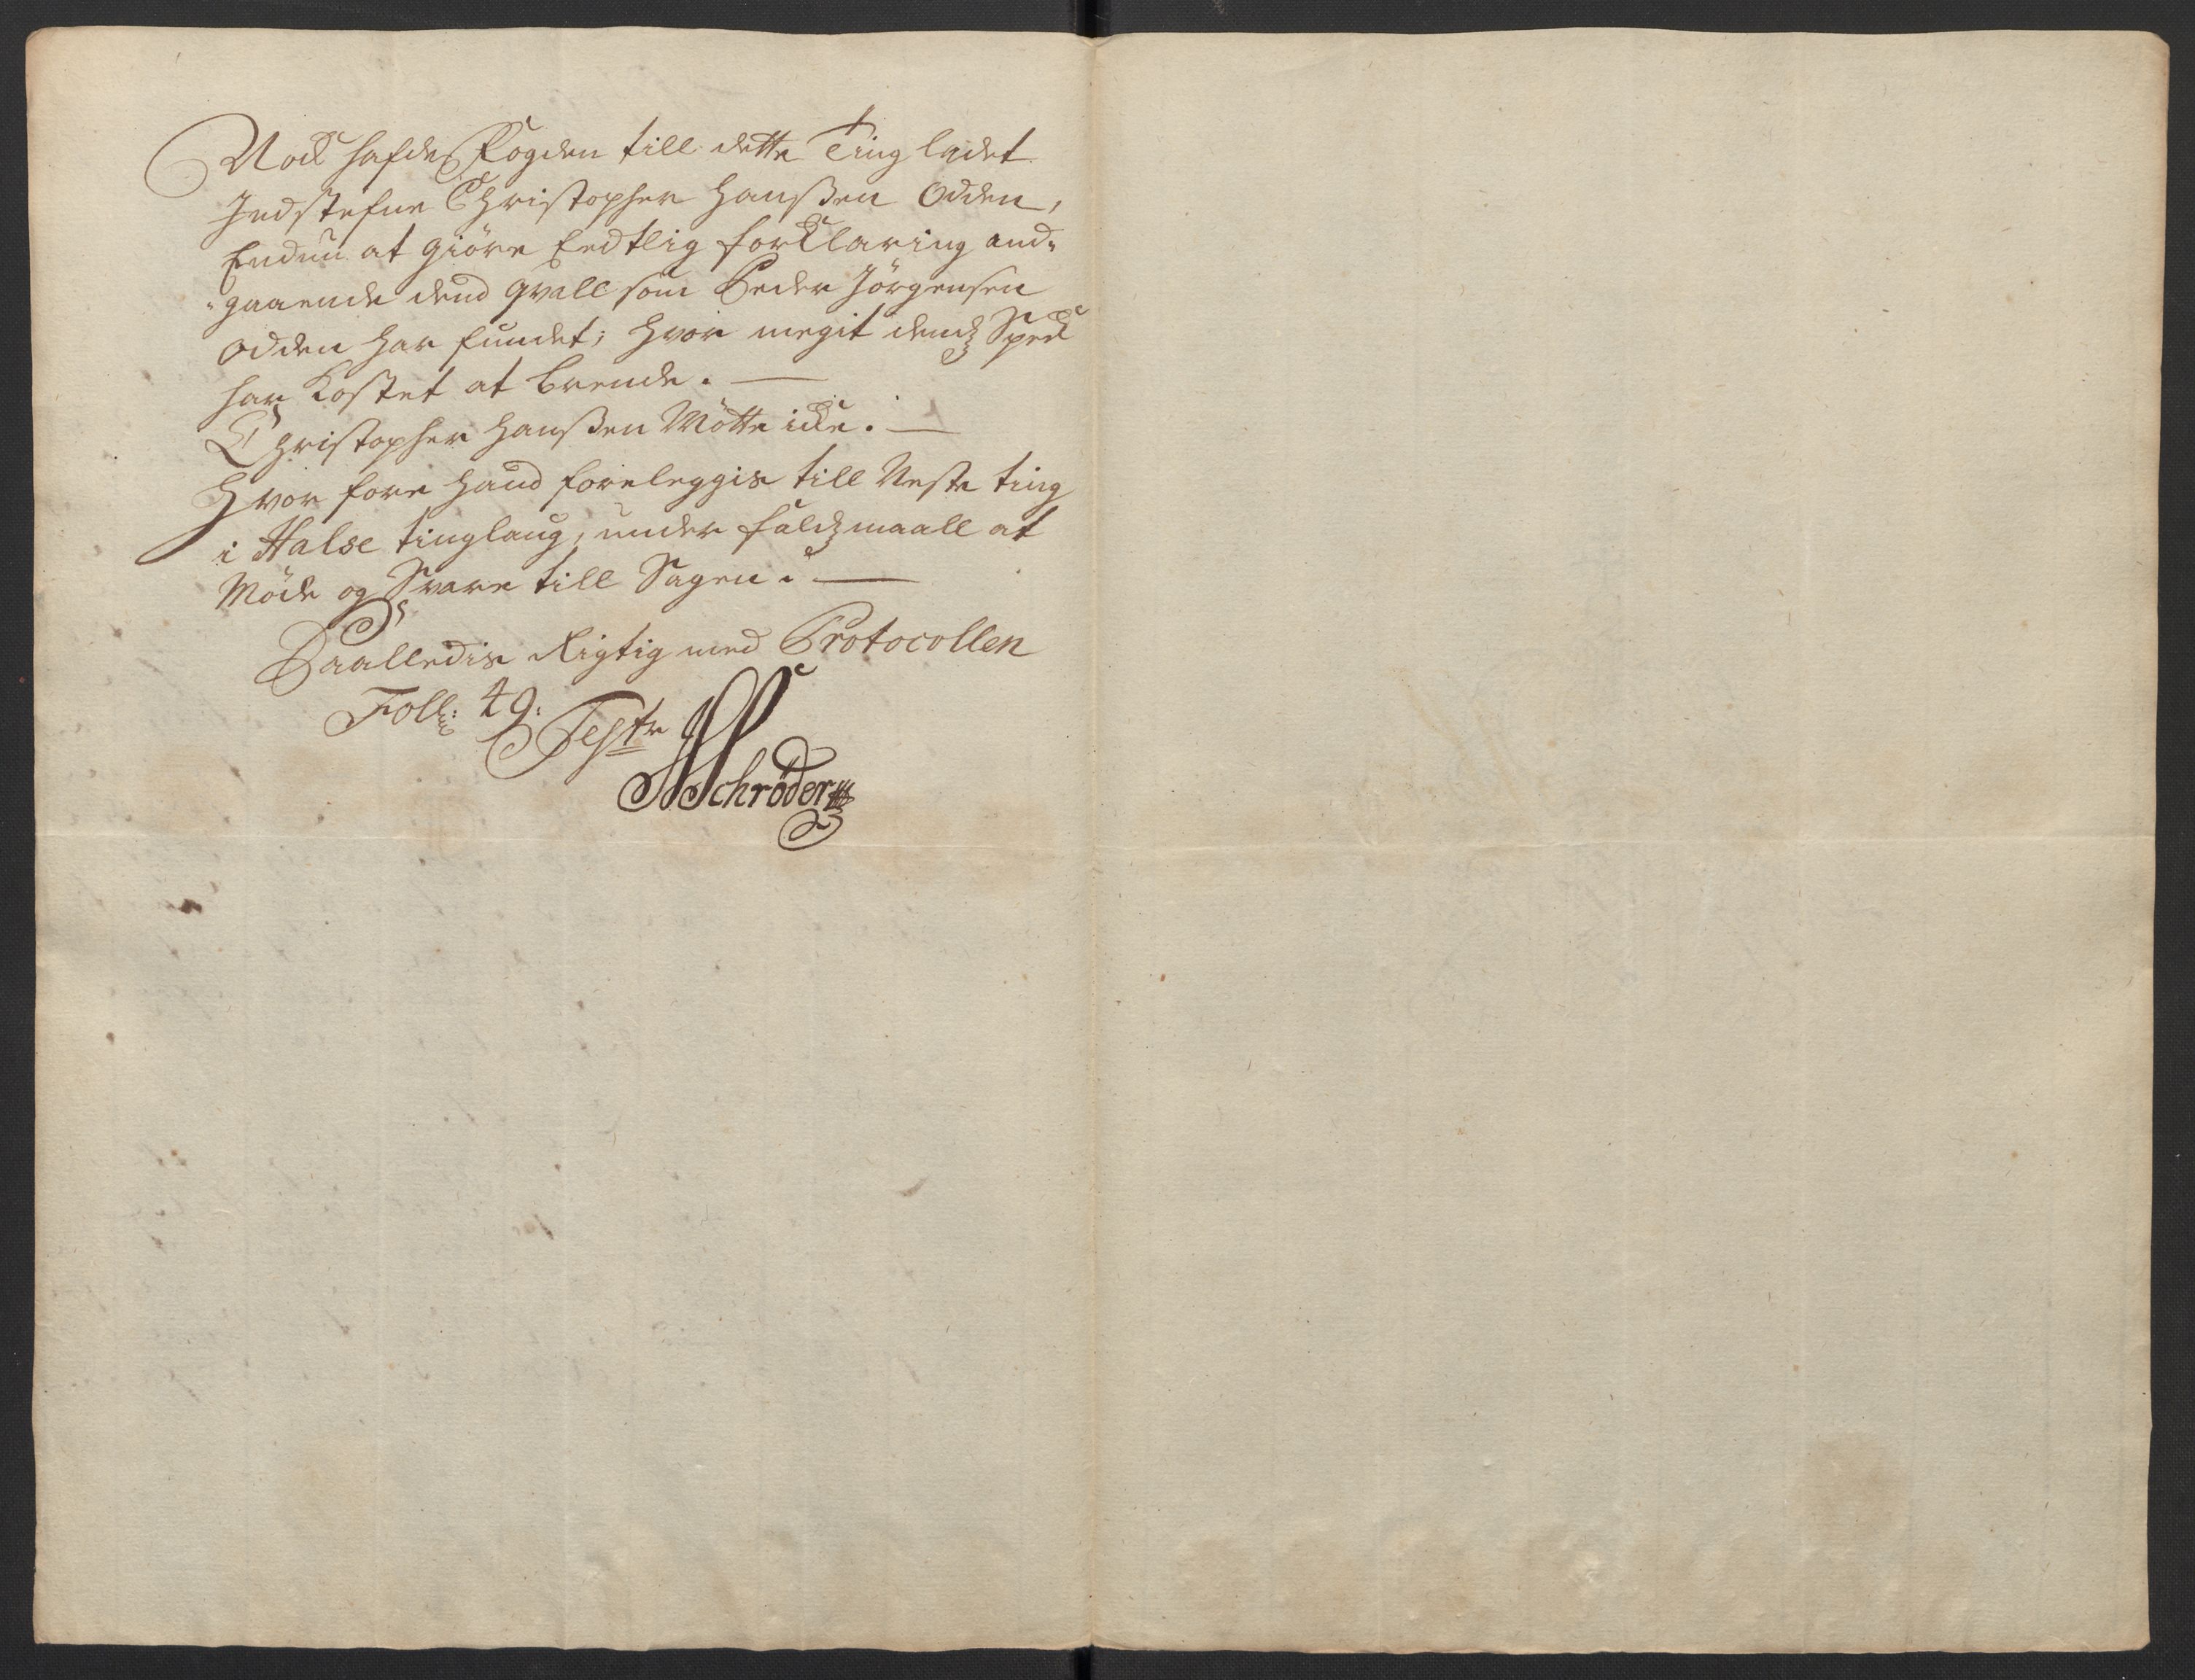 Nock hafde Fogden till dette Ting ladet
Indstefne Christopher Hanßen Odden,
Endnu at giöre Eedtlig forklaring and-
-gaaende dend qvall som Peder Jörgensen
Odden har fundet; hvor megit dends Speck
har kostet at brende. —
Christopher Hanßen Mötte icke. —
Hvor fore hand foreleggis till Neste ting
i Halse tinglaug, under faldsmaall at
Möde og Svare till Sagen. —
Saalledis Rigtig med Protocollen
Foll: 49. Teste
Schröder